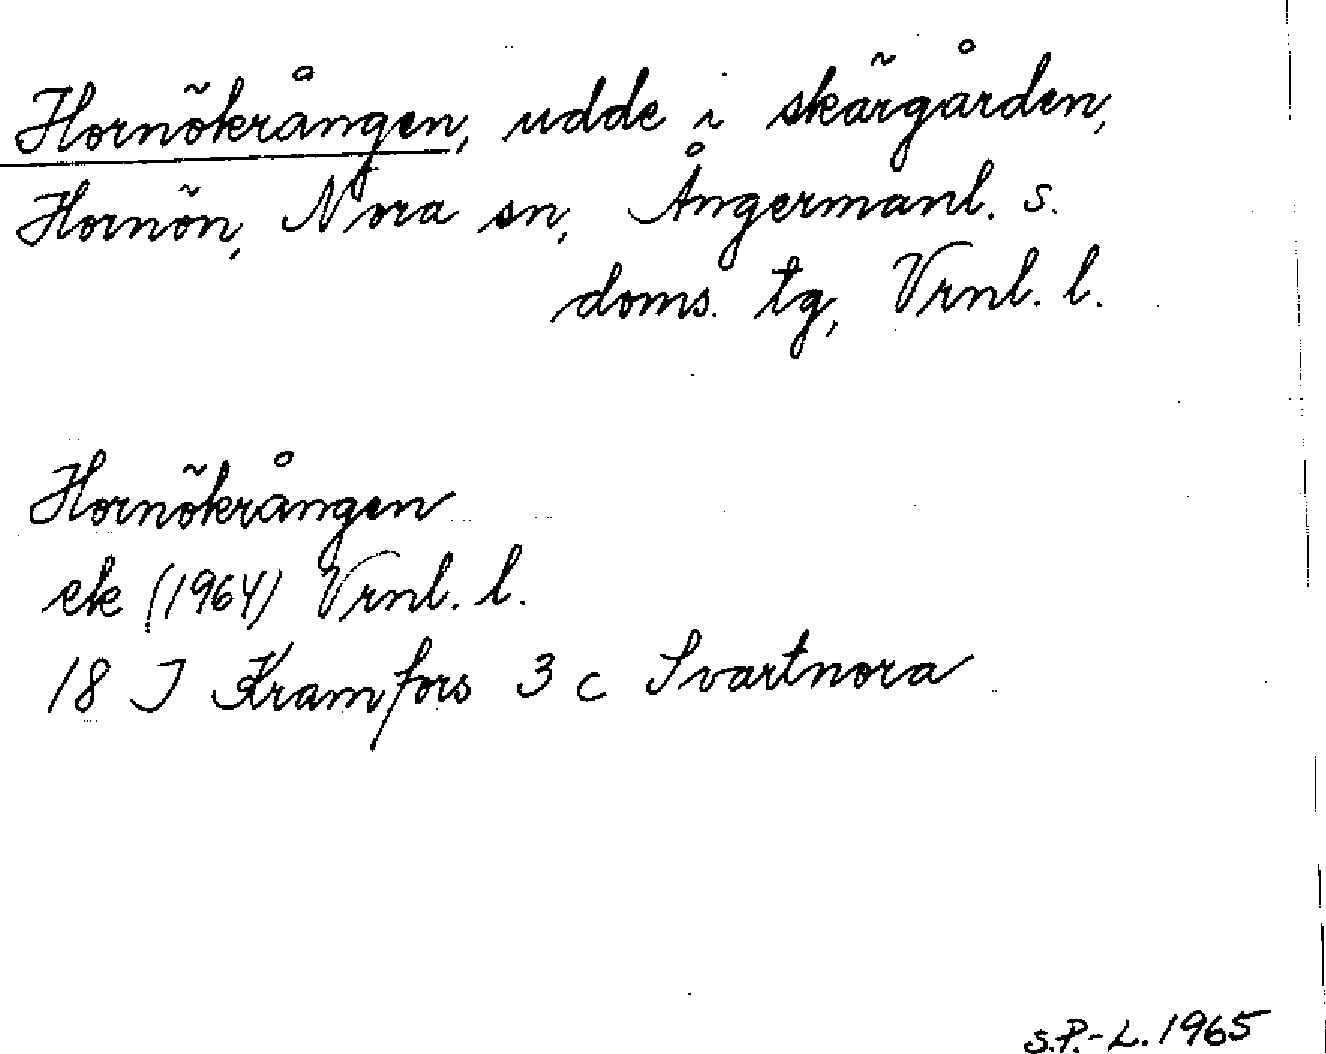 Hornökrången, udde i skärgården,
Hornön, Nora sn, Ångermanl. s.
doms. tg, Vrnl. l.
Hornökrången
ek (1964) Vrnl. l.
18 J Kramfors 3 c Svartnora
S.P.-L. 1965